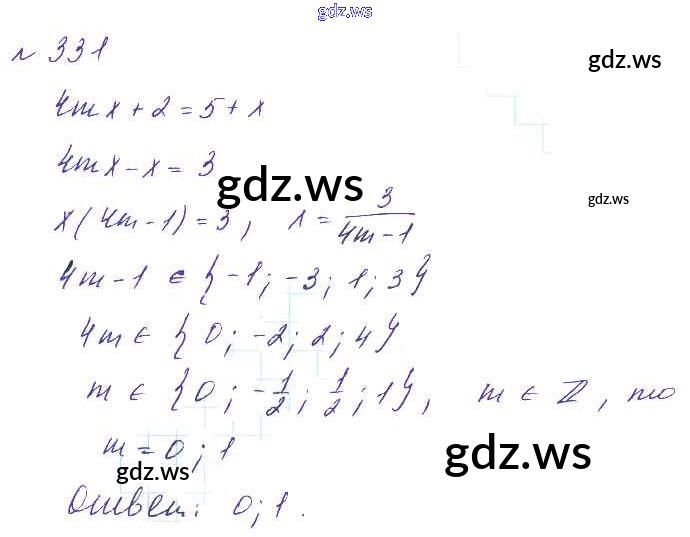 gdz.ws
№ 331
gdz.ws
4mx + 2 = 5 + x
4mx - x = 3
gdz.ws
gdz.ws
x(4m - 1) = 3, x = 3/(4m - 1)
4m - 1 ∈ {-1; -3; 1; 3}
4m ∈ {0; -2; 2; 4}
m ∈ {0; -1/2; 1/2; 1}, m ∈ ℤ, то
m = 0; 1
gdz.ws
gdz.ws
Ответ: 0; 1.